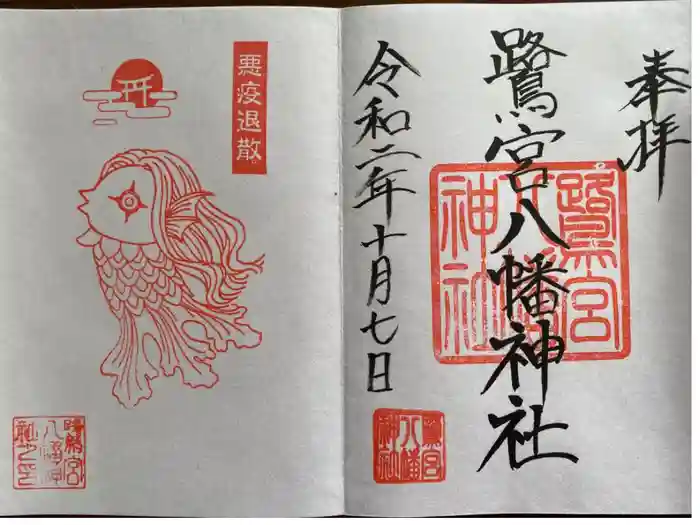 奉拝
鷺宮八幡神社
鷺宮
八幡
神社
令和二年十月七日
鷺宮
八幡
神社
悪疫退散
鷺宮
八幡神